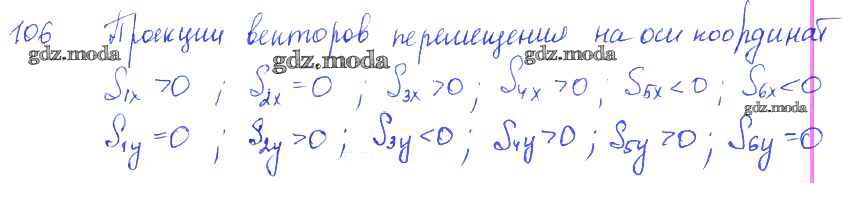 106 Проекции векторов перемещения на оси координат
gdz.moda gdz.moda gdz.moda
S1x >0 ; S2x =0 ; S3x >0 ; S4x >0 ; S5x <0 ; S6x <0
gdz.moda
S1y =0 ; S2y >0 ; S3y <0 ; S4y >0 ; S5y >0 ; S6y =0